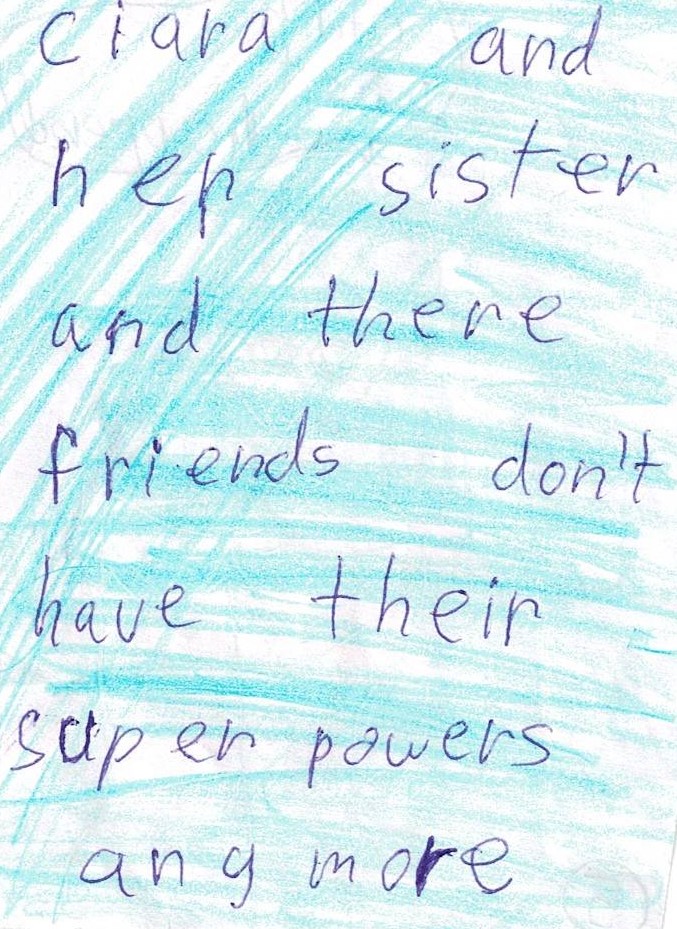 ciara and
her sister
and there
friends don't
have their
super powers
any more